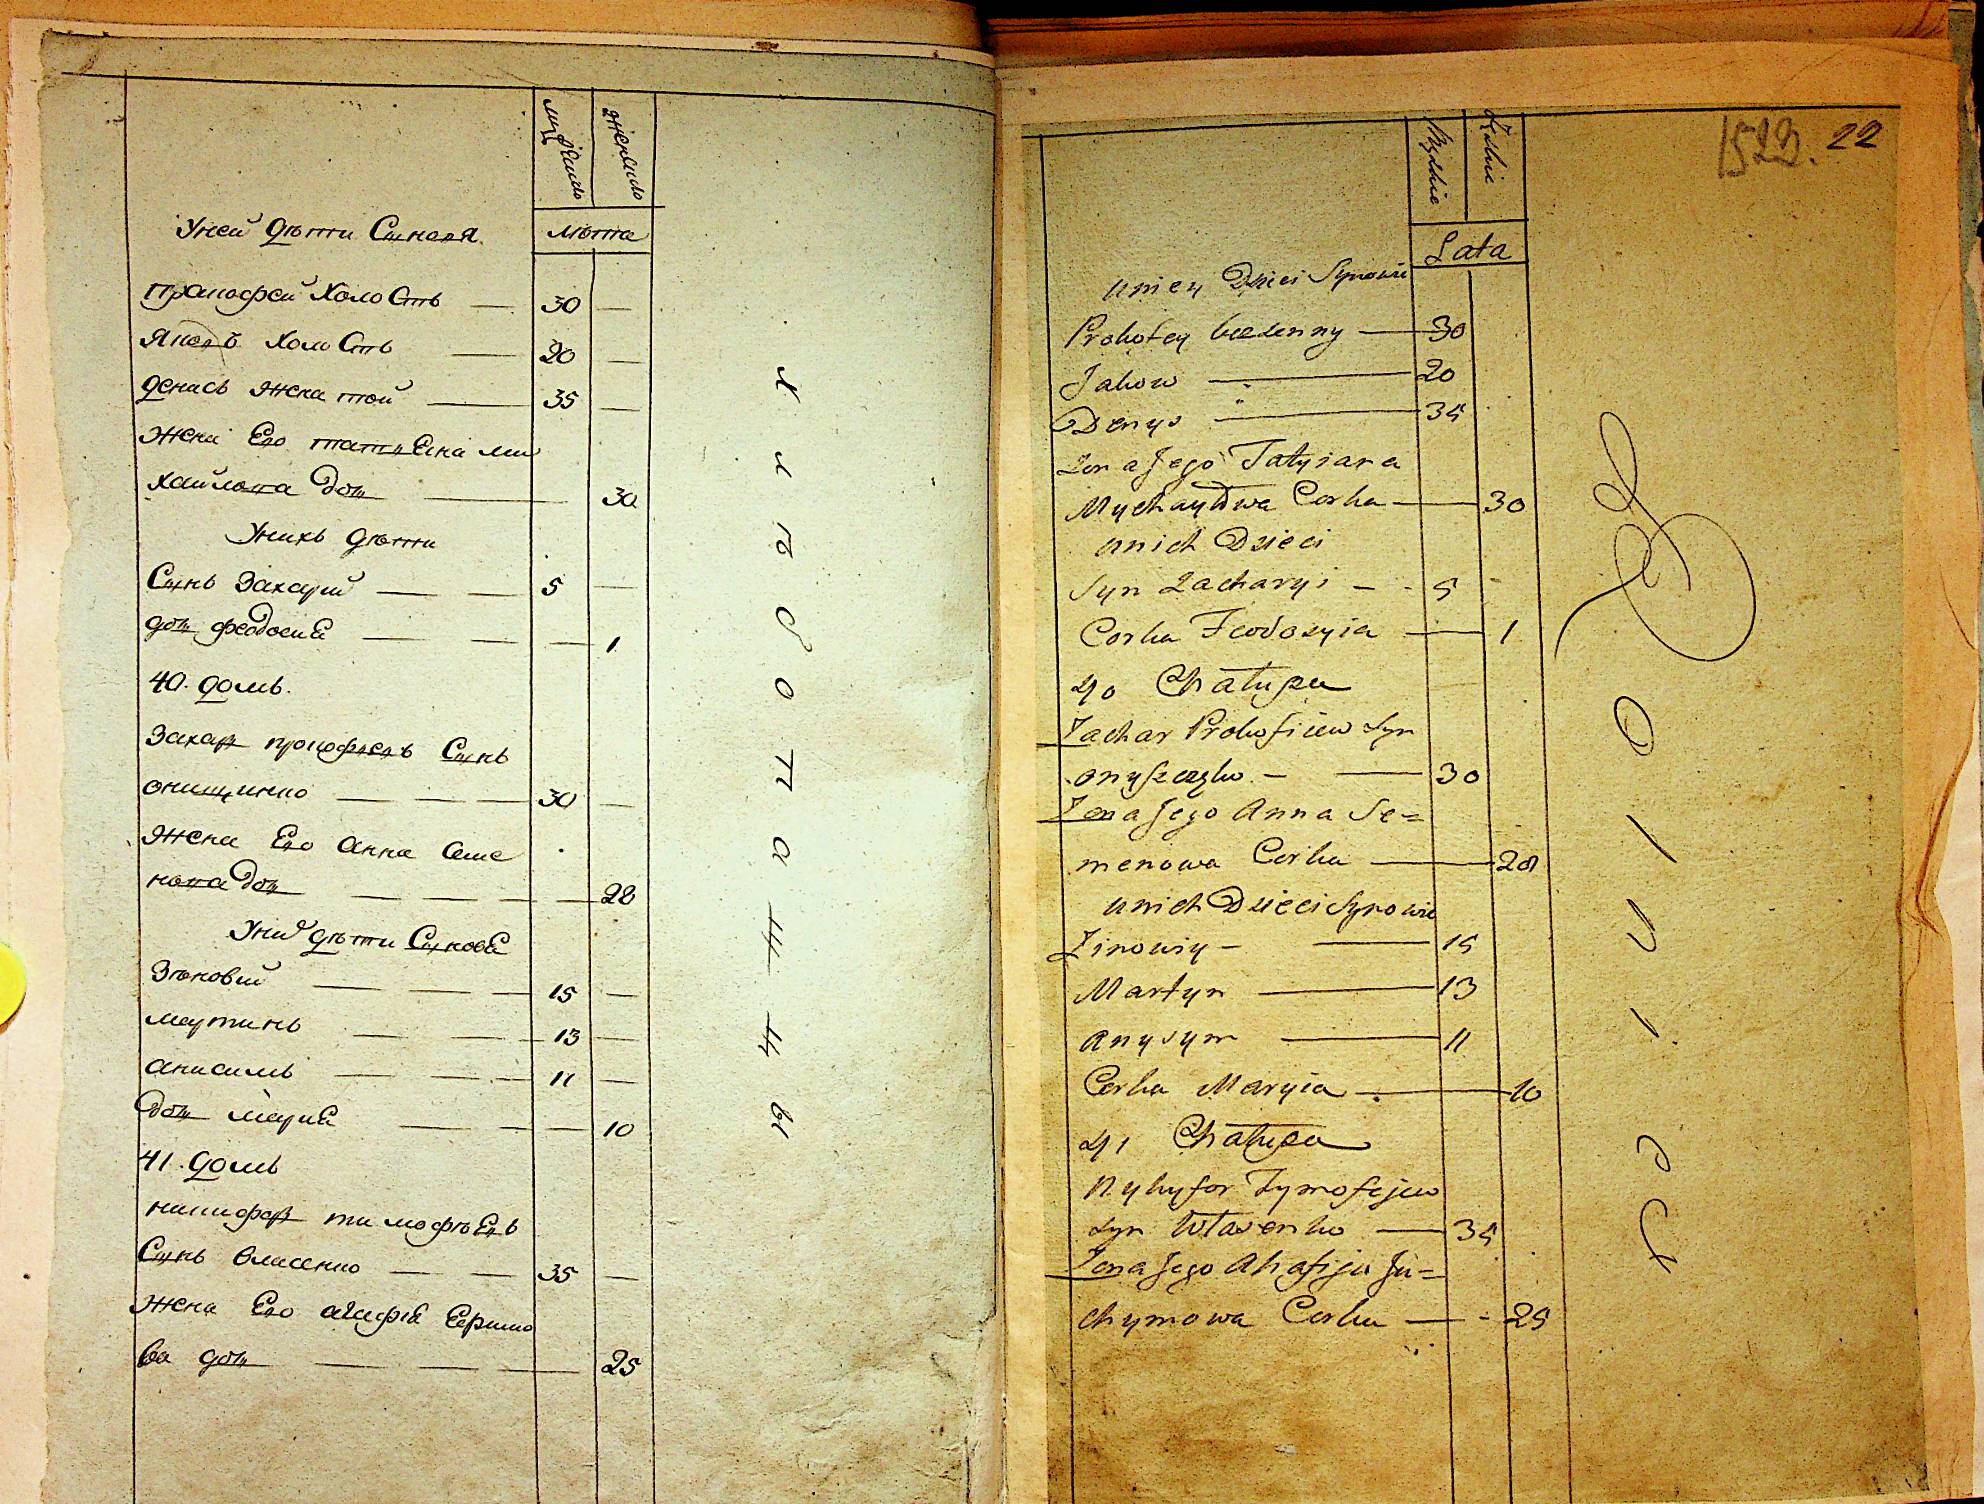 мужеско
женско
Уней дѣтти Сынавя
лѣтта
прокофей холостъ — 30 —
Яковъ холостъ — 20 —
денисъ женатой — 35 —
жена Его татьЕна ми
хайлова доч — 30
Унихъ дѣтти
Сынъ Захарій — — 5 —
доч феодосиЕ — — — 1
40. домъ.
Захар прокофѣевъ Сынъ
онищинко — — — 30 —
жена Его анна Семе
нова доч — — — — 28
Уних дѣтти СыновЕ
Зѣновій — — — 15 —
мартинъ — — 13 —
анисимъ — — — 11 —
доч мариЕ — — — 10
41. домъ
никифор тимофѣЕвъ
Сынъ власенко — — 35 —
жена Его агафіЕ Ефимо
ва доч — — — 25
хлѣбопашцы
1523. 22
Męskie
Żeńskie
Lata
u niey Dzieci Synowie
Prokofey bezżenny — 30
Jakow — " — 20
Denys — " — 35
żona Jego Tatyiana
Mychayłowa Corka — 30
u nich Dzieci
Syn Zacharyi — - 5 -
Corka Feodozyia — 1
40 Chałupa
Zachar Prokofiiew Syn
onyszczęko. — — 30
Żona Jego Anna Se=
menowa Corka — 28
u nich Dzieci Synowie
Zinowiy — — 15
Martyn — 13
Anysym — 11
Corka Maryia — 10
41 Chałupa
Nykyfor Tymofejew
syn Własenko — 35
Żona Jego Ahafija Ju=
chymowa Corka — - 25